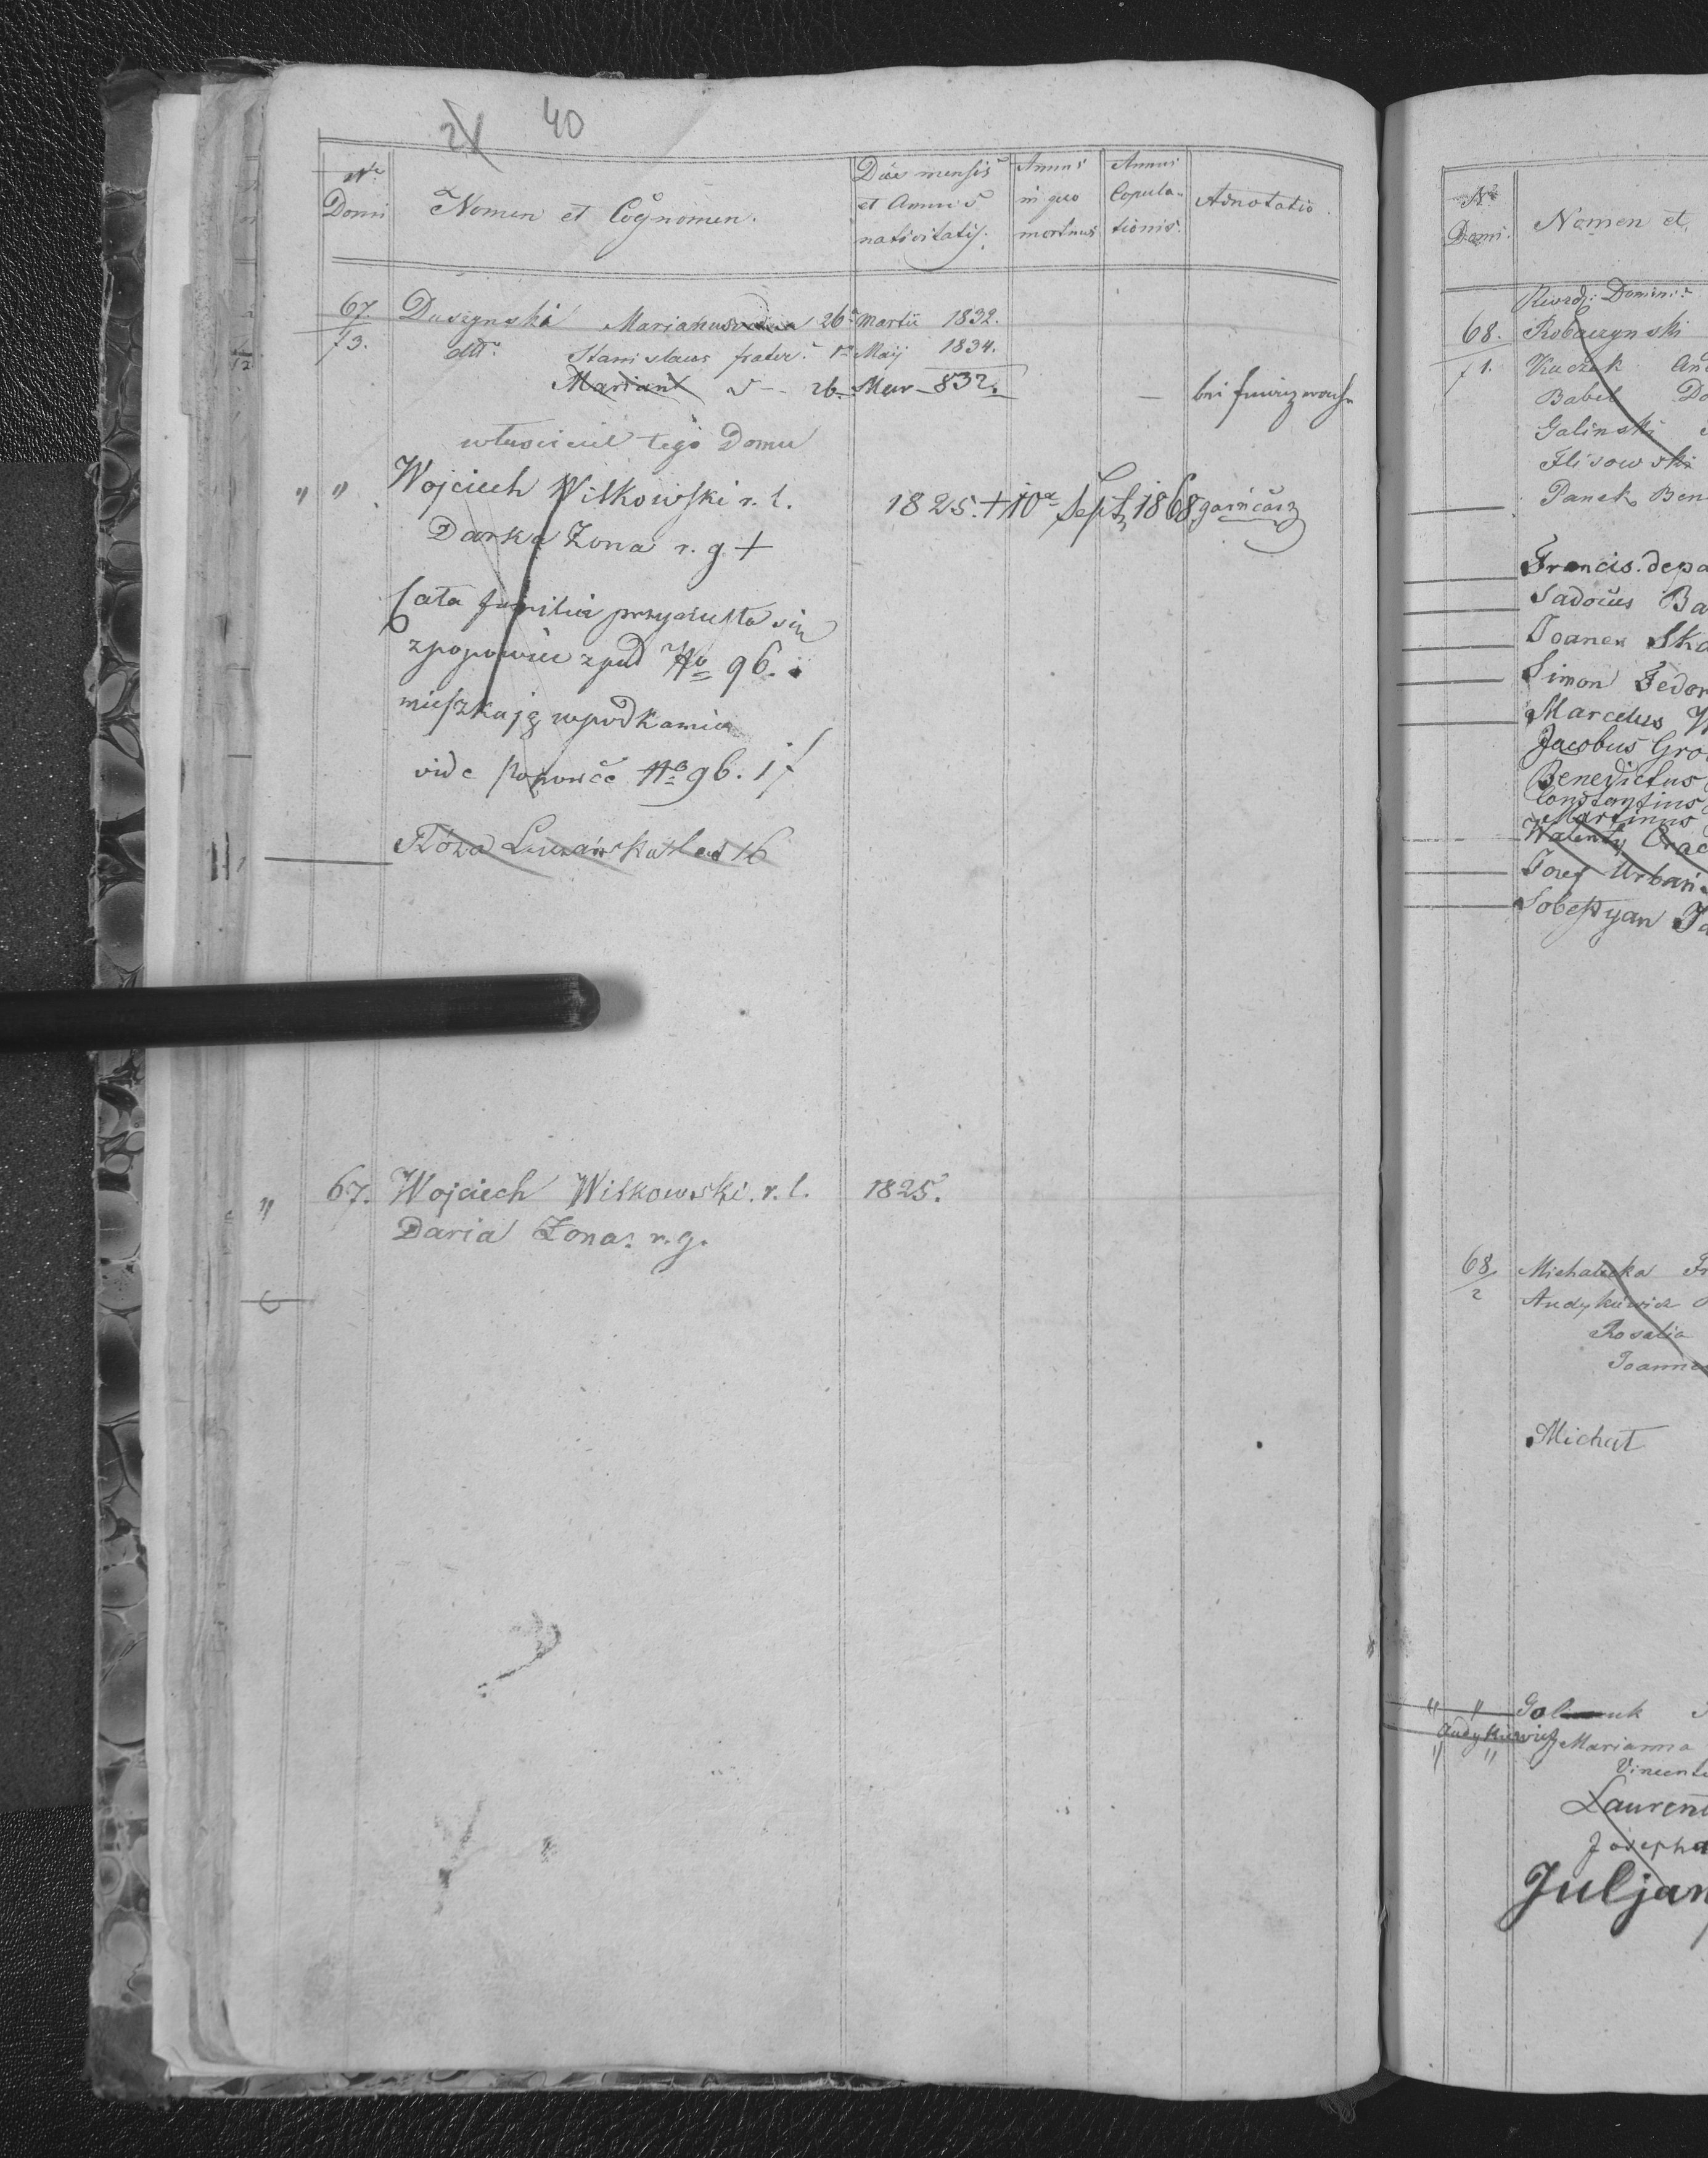 21 40
Nro Domi
Nomen et Cognomen.
Dies mensis et Annus nativitatis.
Annus in quo mortuus
Annus Copulationis.
Adnotatio.
67. Duszynski Marianus 26a Martii 1832.
f 3. dtto Stanislaus frater. 1a Maij 1834.
Marian 26. Mar 832.
właściciel tego Domu
" " Wojciech Witkowski r. l. 1825. + 10a Sept 1868 garńcarz
Darka Żona r. g. +
Cała familia
No 96.
mieszkają wpodkamieu
vide No 96. 1 f
Róża 16
67. Wojciech Witkowski. r. l. 1825.
"
Daria Żona. r. g.
Nro Domi.
Nomen et
68. Robaczynski
f 1. Kaczek And
Babel Do
Galinski
Flisowski
Panek Ben
Francis. depa
Sadous Ba
Joanes Ska
Simon Fedor
Marcelus W
Jacobus Gro
Benedictus
Constantinus
Martinus
Walenty Grac
Jozef Urban
Sobestyan Ja
68 Michalecka Fr
2 Andykiewicz
Rosalia
Joannes
Michał
" "
Andykiewicz Marianna
" " Vincenti
Laurent
Josepha
Juljan